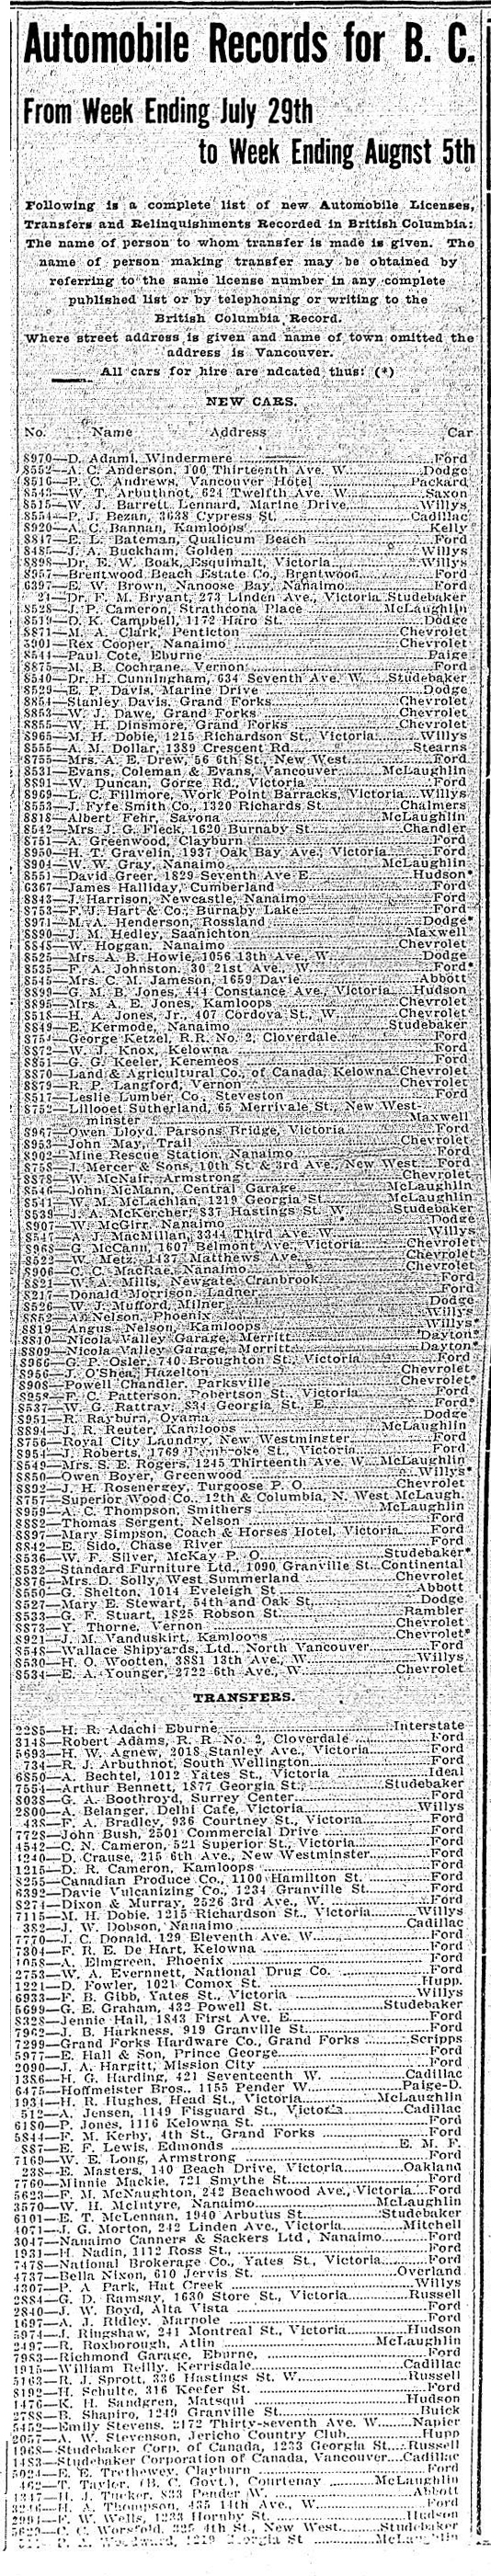 Automobile Records for B. C.
From Week Ending July 29th
to Week Ending Augnst 5th
Following is a complete list of new Automobile Licenses,
Transfers and Relinquishments Recorded in British Columbia:
The name of person to whom transfer is made is given. The
name of person making transfer may be obtained by
referring to the same license number in any complete
published list or by telephoning or writing to the
British Columbia Record.
Where street address is given and name of town omitted the
address is Vancouver.
All cars for hire are ndcated thus: (*)
NEW CARS.
No. Name Address Car
8970—D. Adami, Windermere Ford
8552—A. C. Anderson, 100 Thirteenth Ave. W. Dodge
8516—P. C. Andrews, Vancouver Hotel Packard
8543—W. T. Arbuthnot, 624 Twelfth Ave. W. Saxon
8515—W. J. Barrett Lennard, Marine Drive Willys
8554—P. J. Bezan, 3638 Cypress St. Cadillac
8920—A. C. Banman, Kamloops Kelly
8847—E. L. Bateman, Qualicum Beach Ford
8485—J. A. Buckham, Golden Willys
8898—Dr. E. W. Boak, Esquimalt, Victoria Willys
8957—Brentwood Beach Estate Co., Brentwood Ford
6397—E. W. Brown, Nanoose Bay, Nanaimo Ford
21—Dr. F. M. Bryant, 273 Linden Ave., Victoria Studebaker
8528—J. P. Cameron, Strathcona Place McLaughlin
8519—D. K. Campbell, 1172 Haro St. Dodge
8871—M. A. Clark, Penticton Chevrolet
5901—Rex Cooper, Nanaimo Chevrolet
8544—Paul Cote, Eburne Paige
8875—M. B. Cochrane, Vernon Ford
8540—Dr. H. Cunningham, 634 Seventh Ave. W. Studebaker
8529—E. P. Davis, Marine Drive Dodge
8854—Stanley Davis, Grand Forks Chevrolet
8853—W. J. Dawe, Grand Forks Chevrolet
8855—W. H. Dinsmore, Grand Forks Chevrolet
8965—M. H. Dobie, 1215 Richardson St., Victoria Willys
8555—A. M. Dollar, 1389 Crescent Rd. Stearns
8755—Mrs. A. E. Drew, 56 6th St., New West. Ford
8531—Evans, Coleman & Evans, Vancouver McLaughlin
8891—W. Duncan, Gorge Rd., Victoria Ford
8969—L. C. Fillmore, Work Point Barracks, Victoria Willys
8553—J. Fyfe Smith Co., 1320 Richards St. Chalmers
8818—Albert Fehr, Savona McLaughlin
8542—Mrs. J. G. Fleck, 1620 Burnaby St. Chandler
8751—A. Greenwood, Clayburn Ford
8960—H. T. Gravelin, 1937 Oak Bay Ave., Victoria Ford
8904—W. W. Gray, Nanaimo McLaughlin
8551—David Greer, 1829 Seventh Ave E. Hudson*
6367—James Halliday, Cumberland Ford
8843—J. Harrison, Newcastle, Nanaimo Ford
8753—F. J. Hart & Co., Burnaby Lake Ford
8971—M. A. Henderson, Rossland Dodge*
8890—J. M. Hedley, Saanichton Maxwell
8848—W. Hoggan, Nanaimo Chevrolet
8525—Mrs. A. B. Howie, 1056 13th Ave., W. Dodge
8535—F. A. Johnston, 30 21st Ave., W. Ford*
8545—Mrs. C. M. Jameson, 1659 Davie Abbott
8899—G. M. B. Jones, 444 Constance Ave., Victoria Hudson
8895—Mrs. A. E. Jones, Kamloops Chevrolet
8518—H. A. Jones, Jr., 407 Cordova St., W. Chevrolet
8849—E. Kermode, Nanaimo Studebaker
8754—George Ketzel, R.R. No. 2, Cloverdale Ford
8872—W. J. Knox, Kelowna Ford
8851—G. G. Keeler, Keremeos Ford
8870—Land & Agricultural Co., of Canada, Kelowna Chevrolet
8879—R. P. Langford, Vernon Chevrolet
8517—Leslie Lumber Co., Steveston Ford
8752—Lillooet Sutherland, 65 Merrivale St., New West-
minster Maxwell
8967—Owen Lloyd, Parsons Bridge, Victoria Ford
8953—John May, Trail Chevrolet
8902—Mine Rescue Station, Nanaimo Ford
8758—J. Mercer & Sons, 10th St. & 3rd Ave., New West. Ford
8878—W. McNair, Armstrong Chevrolet
8546—John McMann, Central Garage McLaughlin
8541—W. M. McLachlan, 1219 Georgia St. McLaughlin
8539—J. A. McKercher, 837 Hastings St. W. Studebaker
8907—W. McGirr, Nanaimo Dodge
8547—A. J. MacMillan, 3344 Third Ave. W. Willys
8968—G. McCann, 1607 Belmont Ave., Victoria Chevrolet
8522—W. Metz, 1437 Matthews Ave. Chevrolet
8906—C. C. MacRae, Nanaimo Chevrolet
8821—W. A. Mills, Newgate, Cranbrook Ford
8217—Donald Morrison, Ladner Ford
8526—W. J. Mufford, Milner Dodge
8852—A. Nelson, Phoenix Willys
8819—Angus Nelson, Kamloops Willys*
8810—Nicola Valley Garage, Merritt Dayton*
8809—Nicola Valley Garage, Merritt Dayton*
8966—G. P. Osler, 740 Broughton St., Victoria Ford
8956—J. O'Shea, Hazelton Chevrolet
8908—Powell Chandler, Parksville Chevrolet*
8958—F. C. Patterson, Robertson St., Victoria Ford
8537—W. G. Rattray, 834 Georgia St., E. Ford*
8951—R. Rayburn, Oyama Dodge
8894—J. R. Reuter, Kamloops McLaughlin
8756—Royal City Laundry, New Westminster Ford
8954—J. Roberts, 1769 Pembroke St., Victoria Ford
8549—Mrs. S. E. Rogers, 1245 Thirteenth Ave. W. McLaughlin
8850—Owen Boyer, Greenwood Willys*
8892—J. H. Rosenergey, Turgoose P. O. Chevrolet
8757—Superior Wood Co., 12th & Columbia, N. West McLaugh.
8959—A. C. Thompson, Smithers McLaughlin
8882—Thomas Sergent, Nelson Ford
8897—Mary Simpson, Coach & Horses Hotel, Victoria Ford
8842—E. Sido, Chase River Ford
8536—W. F. Silver, McKay P. O. Studebaker*
8532—Standard Furniture Ltd., 1090 Granville St. Continental
8876—Mrs. D. Solly, West Summerland Chevrolet
8550—G. Shelton, 1014 Eveleigh St. Abbott
8527—Mary E. Stewart, 54th and Oak St. Dodge
8533—G. F. Stuart, 1825 Robson St. Rambler
8873—Y. Thorne, Vernon Chevrolet
8921—J. M. Vanduskirt, Kamloops Chevrolet*
8548—Wallace Shipyards, Ltd., North Vancouver Ford
8530—H. O. Wootten, 3881 13th Ave., W. Willys
8534—E. A. Younger, 2722 6th Ave., W. Chevrolet
TRANSFERS.
2285—H. R. Adachi Eburne Interstate
3148—Robert Adams, R. R. No. 2, Cloverdale Ford
5693—H. W. Agnew, 2018 Stanley Ave., Victoria Ford
734—R. J. Arbuthnot, South Wellington Ford
6850—A. Bechtel, 1012 Yates St., Victoria Ideal
7554—Arthur Bennett, 1877 Georgia St., Studebaker
8038—G. A. Boothroyd, Surrey Center Ford
2800—A. Belanger, Delhi Cafe, Victoria Willys
438—F. A. Bradley, 936 Courtney St., Victoria Ford
7728—John Bush, 2501 Commercial Drive Ford
4542—C. N. Cameron, 521 Superior St., Victoria Ford
4240—D. Crause, 215 6th Ave., New Westminster Ford
1215—D. R. Cameron, Kamloops Ford
8255—Canadian Produce Co., 1100 Hamilton St. Ford
6392—Davie Vulcanizing Co., 1234 Granville St. Ford
8274—Dixon & Murray, 2526 3rd Ave., W. Ford
7115—M. H. Dobie, 1215 Richardson St., Victoria Willys
382—J. W. Dobson, Nanaimo Cadillac
7770—J. C. Donald, 129 Eleventh Ave. W. Ford
7304—F. R. E. De Hart, Kelowna Ford
1058—A. Elmgreen, Phoenix Ford
2753—W. A. Evernnett, National Drug Co. Ford
1221—D. Fowler, 1021 Comox St. Hupp.
6933—F. B. Gibb, Yates St., Victoria Willys
5699—G. E. Graham, 432 Powell St. Studebaker
8328—Jennie Hall, 1843 First Ave. E. Ford
7962—J. B. Harkness, 919 Granville St. Ford
7299—Grand Forks Hardware Co., Grand Forks Scripps
5977—E. Hall & Son, Prince George Ford
2090—J. A. Hargitt, Mission City Ford
1386—H. G. Harding, 421 Seventeenth W. Cadillac
6475—Hoffmeister Bros., 1155 Pender W. Paige-D.
1931—H. R. Hughes, Head St., Victoria McLaughlin
512—A. Jensen, 1149 Fisguard St., Victoria Cadillac
6180—P. Jones, 1116 Kelowna St. Ford
5844—F. M. Kerby, 4th St., Grand Forks Ford
887—E. F. Lewis, Edmonds E. M. F.
7169—W. E. Long, Armstrong Ford
238—E. Masters, 140 Beach Drive, Victoria Oakland
7760—Minnie Mackie, 721 Smythe St. Ford
5623—F. M. McNaughton, 242 Beachwood Ave., Victoria Ford
3570—W. H. McIntyre, Nanaimo McLaughlin
6101—E. T. McLennan, 1940 Arbutus St. Studebaker
4071—J. G. Morton, 242 Linden Ave., Victoria Mitchell
3047—Nanaimo Canners & Sackers Ltd., Nanaimo Ford
1931—H. Nadin, 1112 Ross St., Ford
7478—National Brokerage Co., Yates St., Victoria Ford
4737—Bella Nixon, 610 Jervis St. Overland
4307—P. A Park, Hat Creek Willys
2884—G. D. Ramsay, 1630 Store St., Victoria Russell
2840—J. W. Boyd, Alta Vista Ford
1697—A. J. Ridley, Marpole Ford
5974—J. Ringshaw, 241 Montreal St., Victoria Hudson
2497—R. Roxborough, Atlin McLaughlin
7983—Richmond Garage, Eburne, Ford
1915—William Reilly, Kerrisdale Cadillac
5163—R. J. Sprott, 336 Hastings St. W. Russell
8192—H. Schulte, 316 Keefer St. Ford
1476—K. H. Sandgren, Matsqui Hudson
2788—B. Shapiro, 1249 Granville St. Buick
5452—Emily Stevens, 2172 Thirty-seventh Ave. W. Napier
2057—A. W. Stevenson, Jericho Country Club Hupp
1968—Studebaker Corp. of Canada, 1233 Georgia St. Russell
1483—Studebaker Corporation of Canada, Vancouver Cadillac
5024—E. E. Trethewey, Clayburn Ford
462—T. Taylor, (B. C. Govt.), Courtenay McLaughlin
1317—H. J. Tucker, 833 Pender W. Abbott
3246—H. A. Thompson, 435 14th Ave., W. Ford
2991—F. W. Wells, 1233 Hornby St. Hudson
5629—C. C. Worsfold, 325 4th St., New West. Studebaker
Woodward, 1219 Georgia St McLaughlin